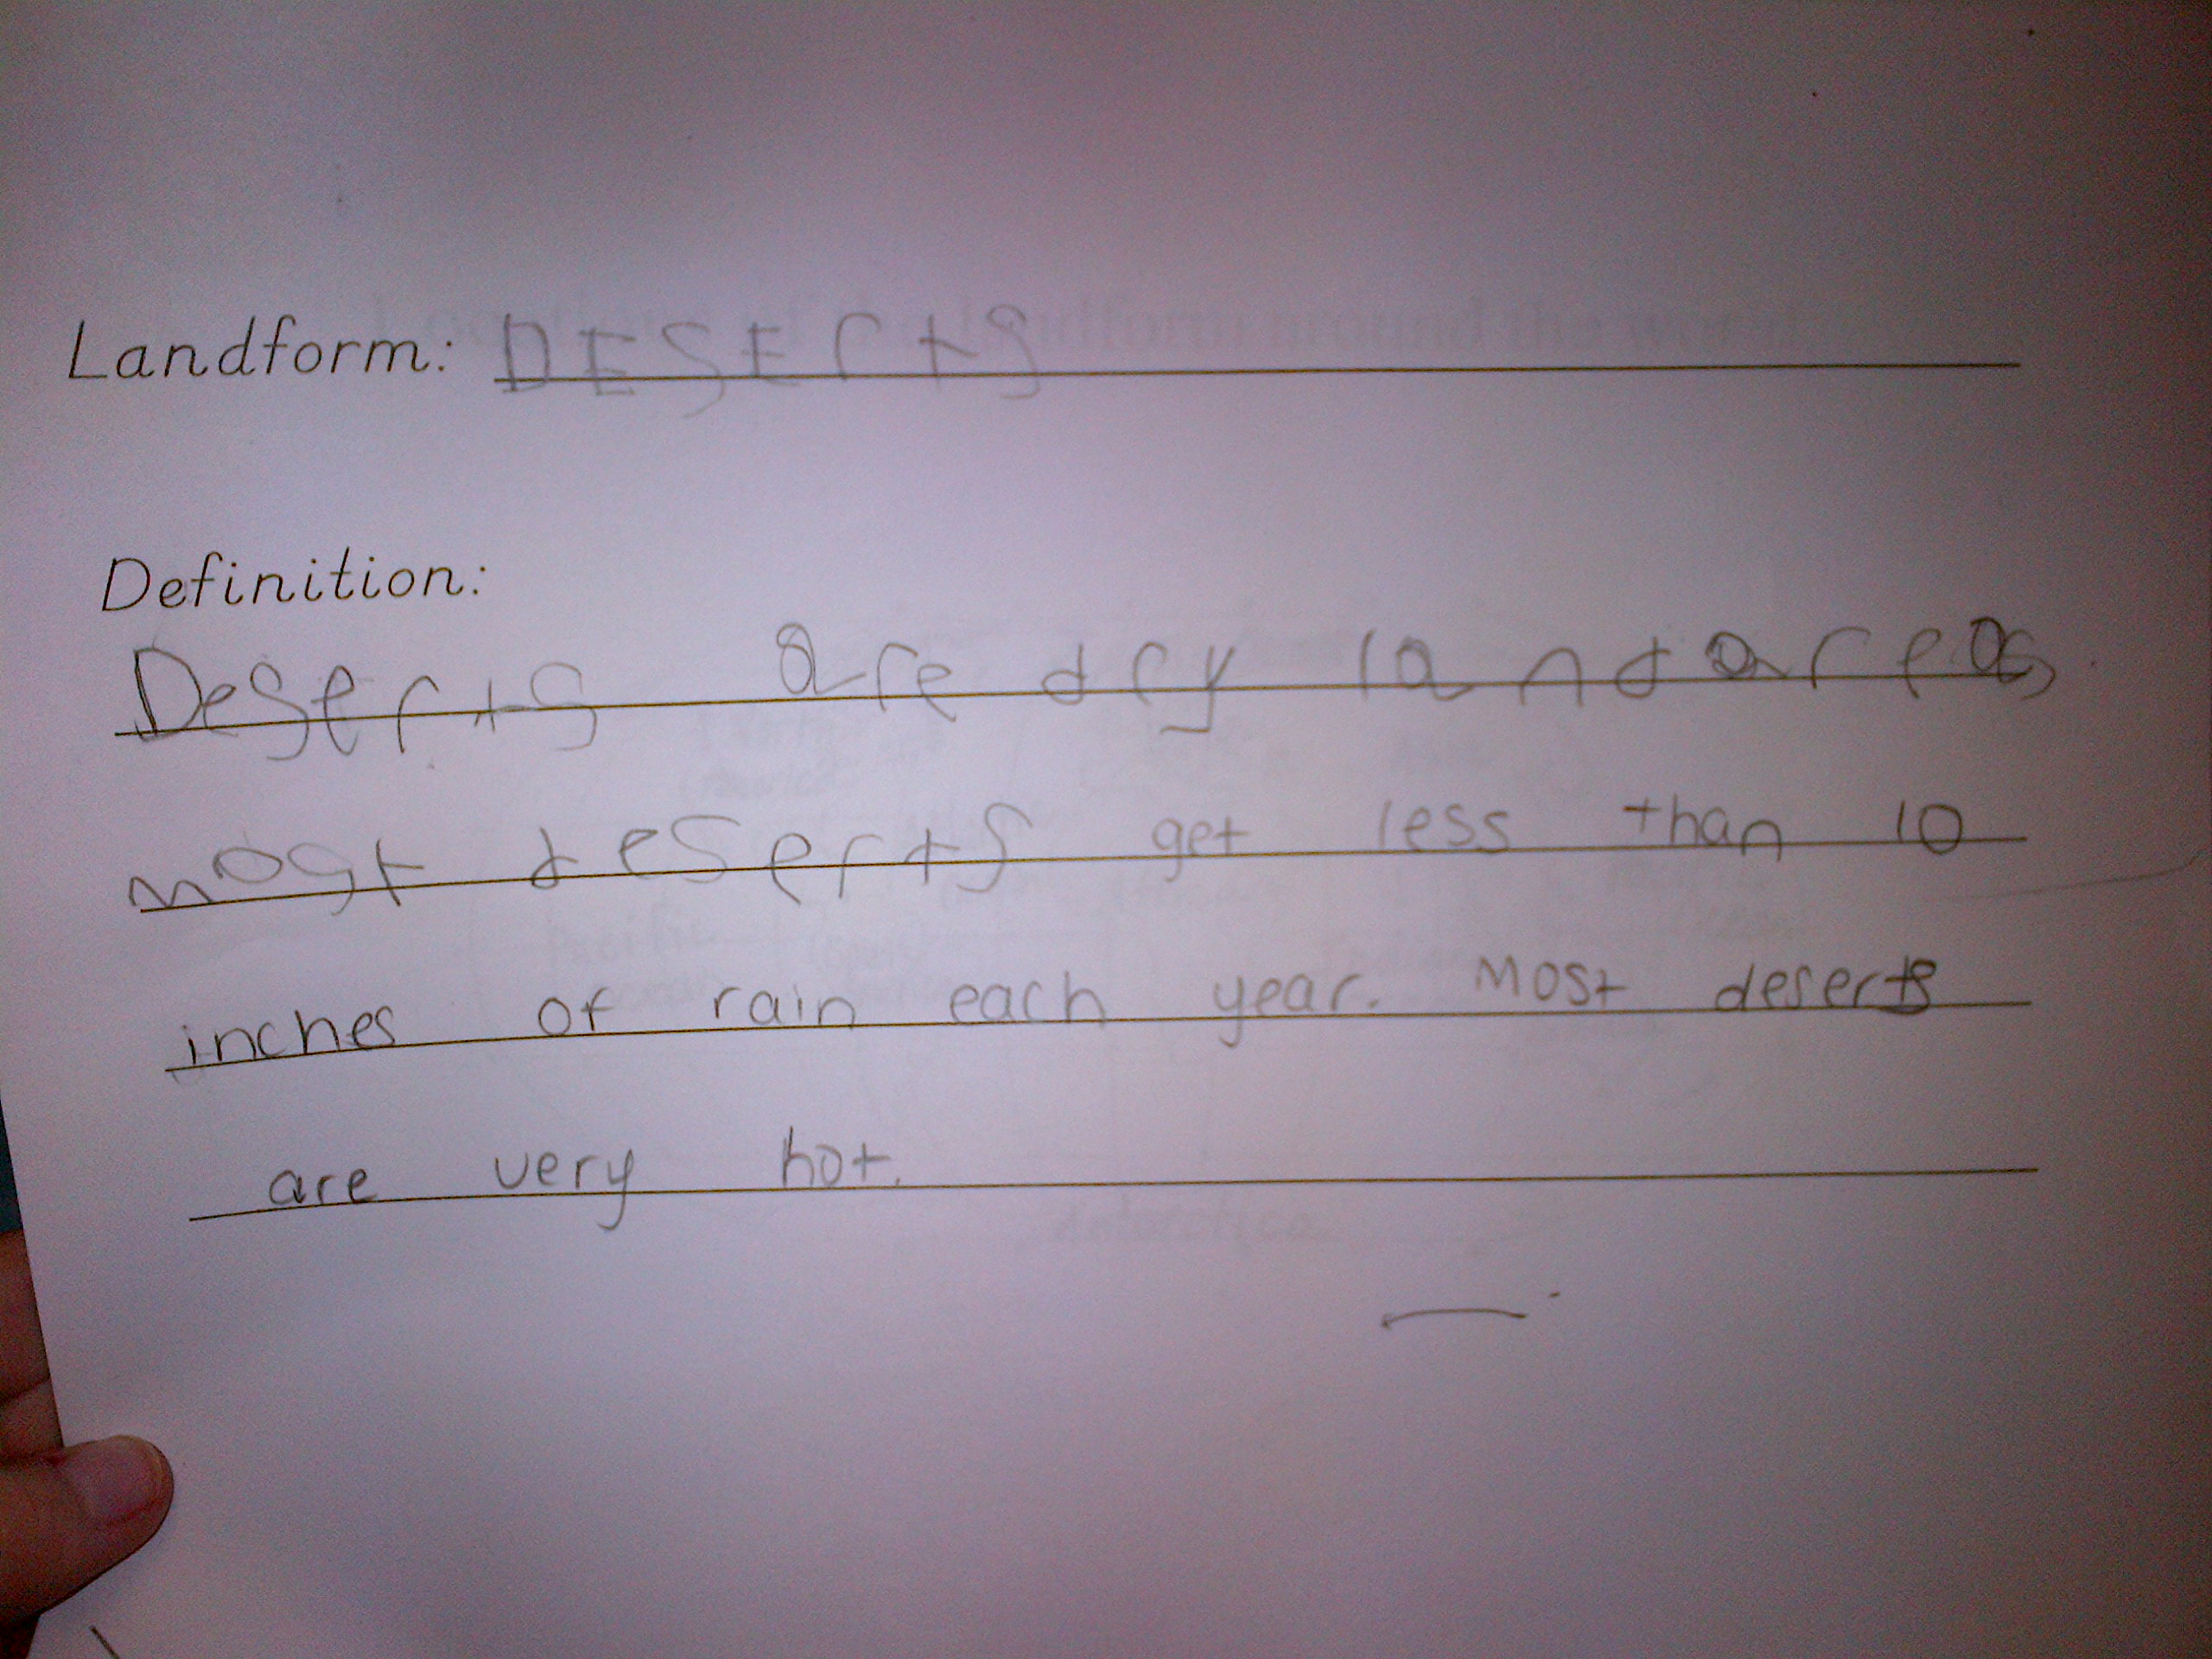 Landform: DESErts
Definition:
Deserts are dry land areas.
most deserts get less than 10
inches of rain each year. Most deserts
are very hot.